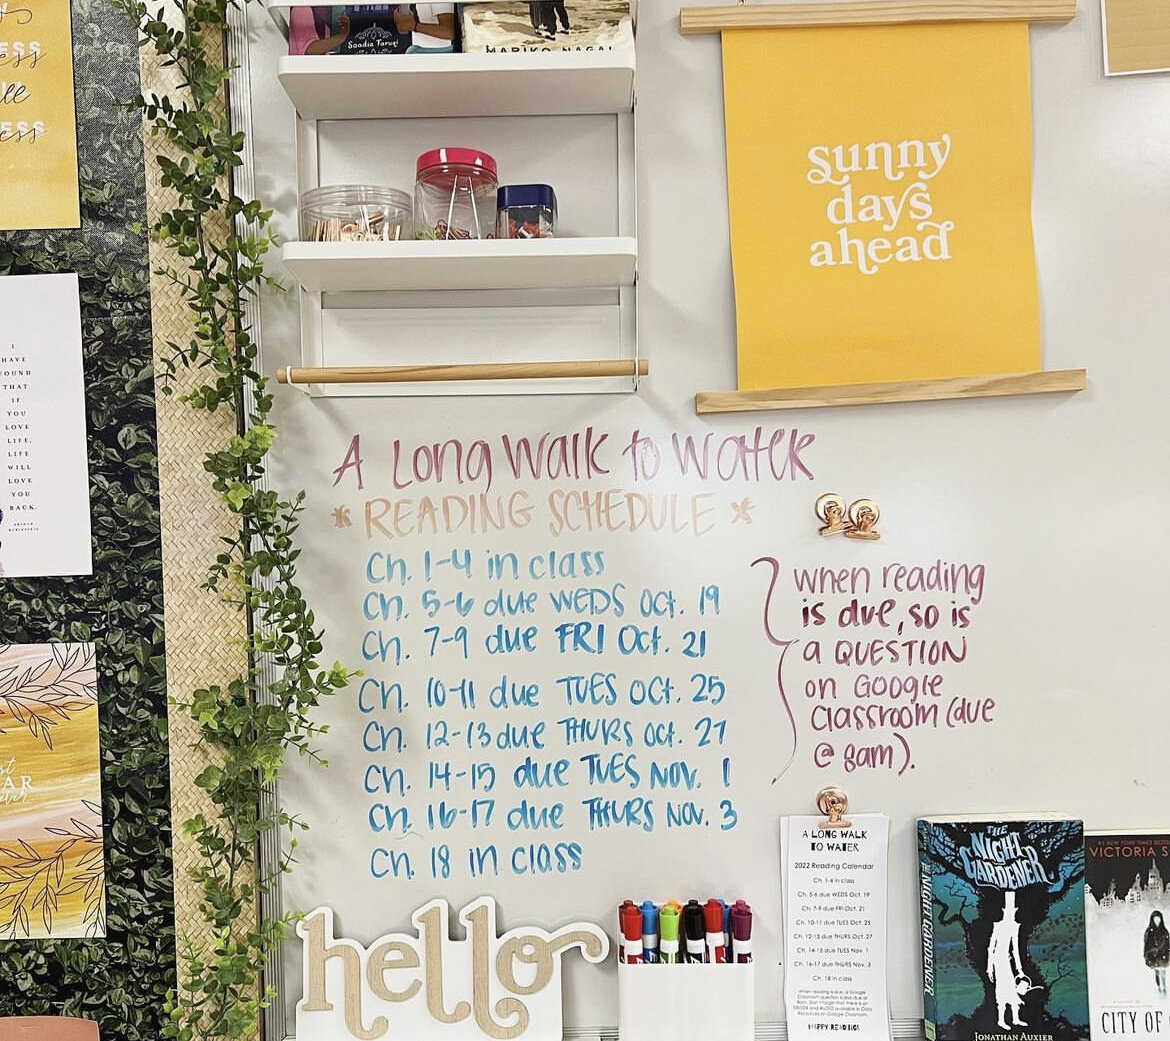 ESS
ess
ee
ESS
ess
Saadia Faruqi
MARIKO NAGAI
sunny
days
ahead
I
HAVE
FOUND
THAT
IF
YOU
LOVE
LIFE,
LIFE
WILL
LOVE
YOU
BACK.
ARTHUR
RUBINSTEIN
A Long Walk to Water
* READING SCHEDULE *
Ch. 1-4 in class
Ch. 5-6 due WEDS Oct. 19
Ch. 7-9 due FRI Oct. 21
Ch. 10-11 due TUES Oct. 25
Ch. 12-13 due THURS Oct. 27
Ch. 14-15 due TUES Nov. 1
Ch. 16-17 due THURS Nov. 3
Ch. 18 in class
when reading
is due, so is
a QUESTION
on Google
Classroom (due
@ 8am).
hello
A LONG WALK
TO WATER
2022 Reading Calendar
Ch. 1-4 in class
Ch. 5-6 due WEDS Oct. 19
Ch. 7-9 due FRI Oct. 21
Ch. 10-11 due TUES Oct. 25
Ch. 12-13 due THURS Oct. 27
Ch. 14-15 due TUES Nov. 1
Ch. 16-17 due THURS Nov. 3
Ch. 18 in class
When reading is due, a Google
Classroom question is also due at
8am. Don't forget that there is an
EBOOK and AUDIO available in Class
Resources on Google Classroom.
HAPPY READING!
THE
NIGHT
GARDENER
THE NIGHT GARDENER
JONATHAN AUXIER
VICTORIA S
CITY OF